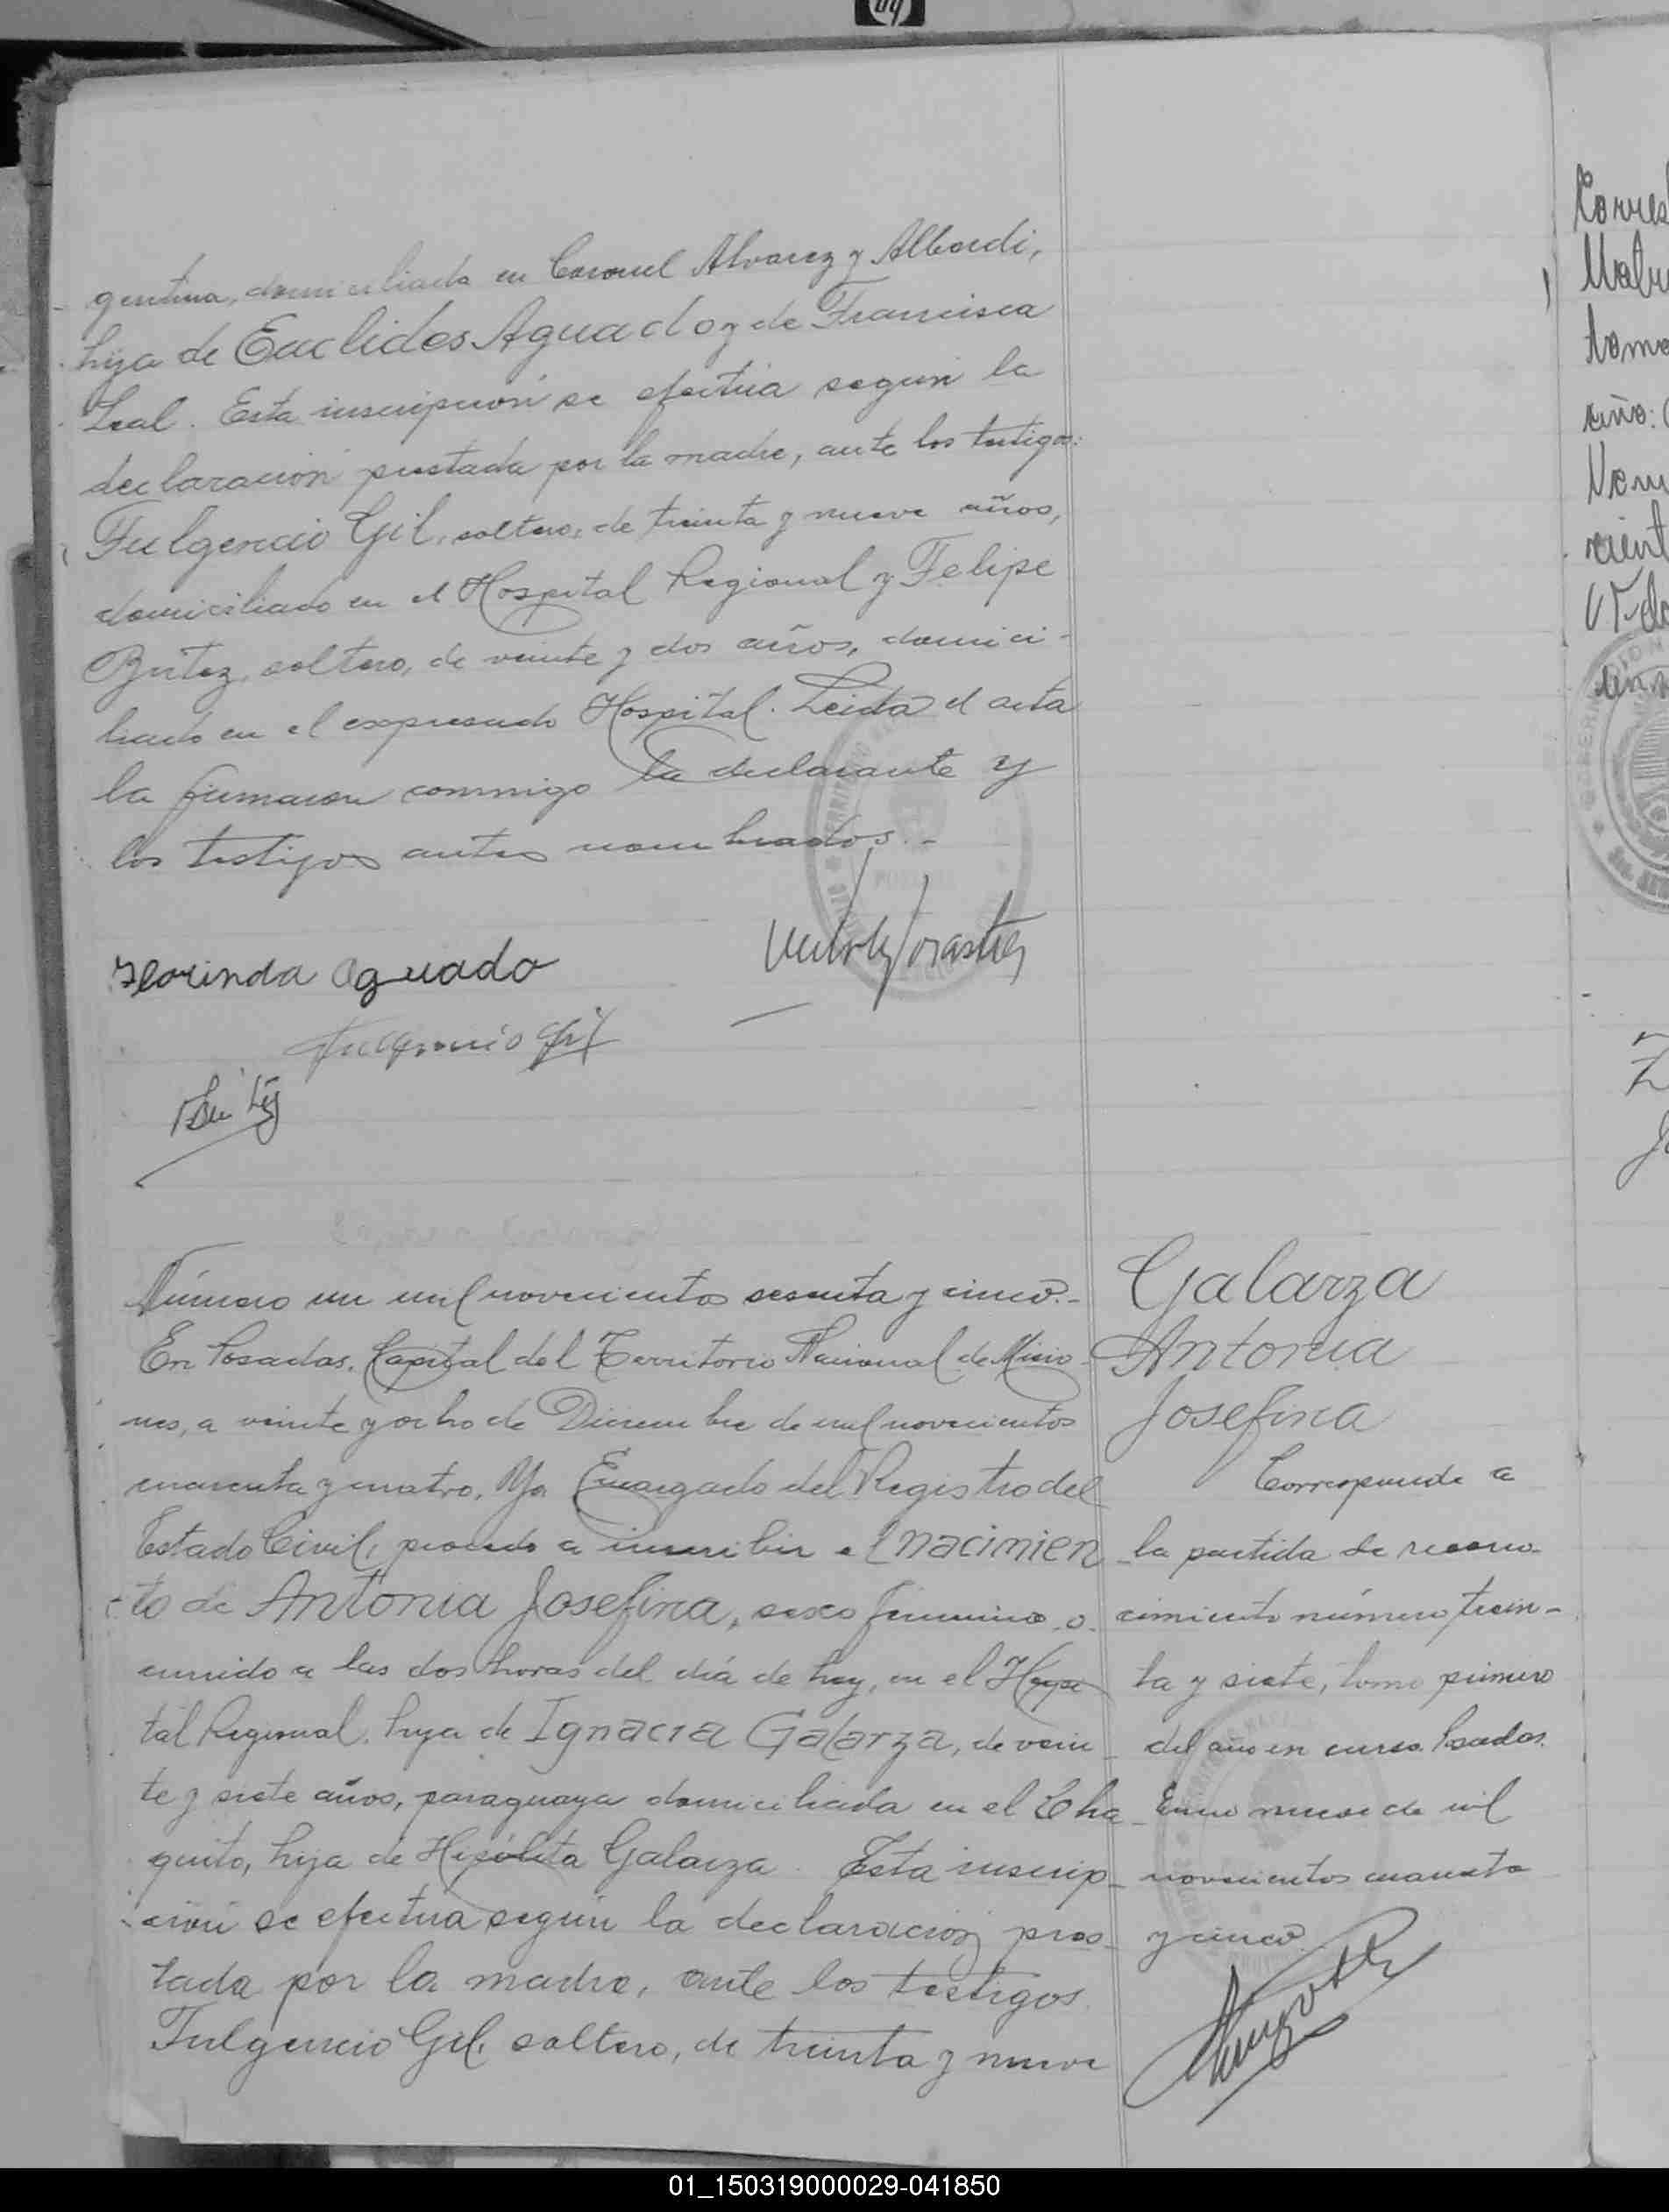 gentina, domiciliada en Coronel Alvarez y Alberdi,
hija de Euclides Aguado y de Francisca
Leal. Esta inscripción se efectúa según la
declaración prestada por la madre, ante los testigos:
Fulgencio Gil, soltero, de treinta y nueve años,
domiciliado en el Hospital Regional y Felipe
Britez, soltero, de veinte y dos años, domici-
liado en el expresado Hospital. Leida el acta
la firmaron conmigo la declarante y
los testigos antes nombrados.-
Florinda Aguado
Fulgencio Gil
Britez
Número un mil novecientos sesenta y cinco.-
En Posadas, Capital del Territorio Nacional de Misio-
nes, a veinte y ocho de Diciembre de mil novecientos
cuarenta y cuatro. Yo Encargado del Registro del
Estado Civil, procedo a inscribir el nacimien
to de Antonia Josefina, sexo femenino, o-
currido a las dos horas del día de hoy, en el Hospi
tal Regional, hija de Ignacia Galarza, de vein-
te y siete años, paraguaya domiciliada en el Cha-
quito, hija de Hipólita Galarza. Esta inscrip-
ción se efectúa según la declaración pres-
tada por la madre, ante los testigos
Fulgencio Gil, soltero, de treinta y nueve
Galarza
Antonia
Josefina
Corresponde a
la partida de recono-
cimiento número trein-
ta y siete, tomo primero
del año en curso. Posadas.
Enero nueve de mil
novecientos cuarenta
y cinco.
01_150319000029-041850